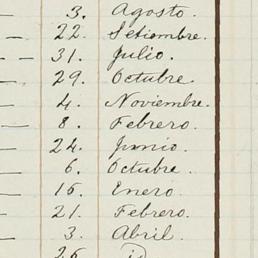 3. Agosto.
22. Setiembre.
31. Julio.
29. Octubre.
4. Noviembre.
8. Febrero.
24. Junio.
6. Octubre.
16. Enero.
21. Febrero.
3. Abril.
26. id